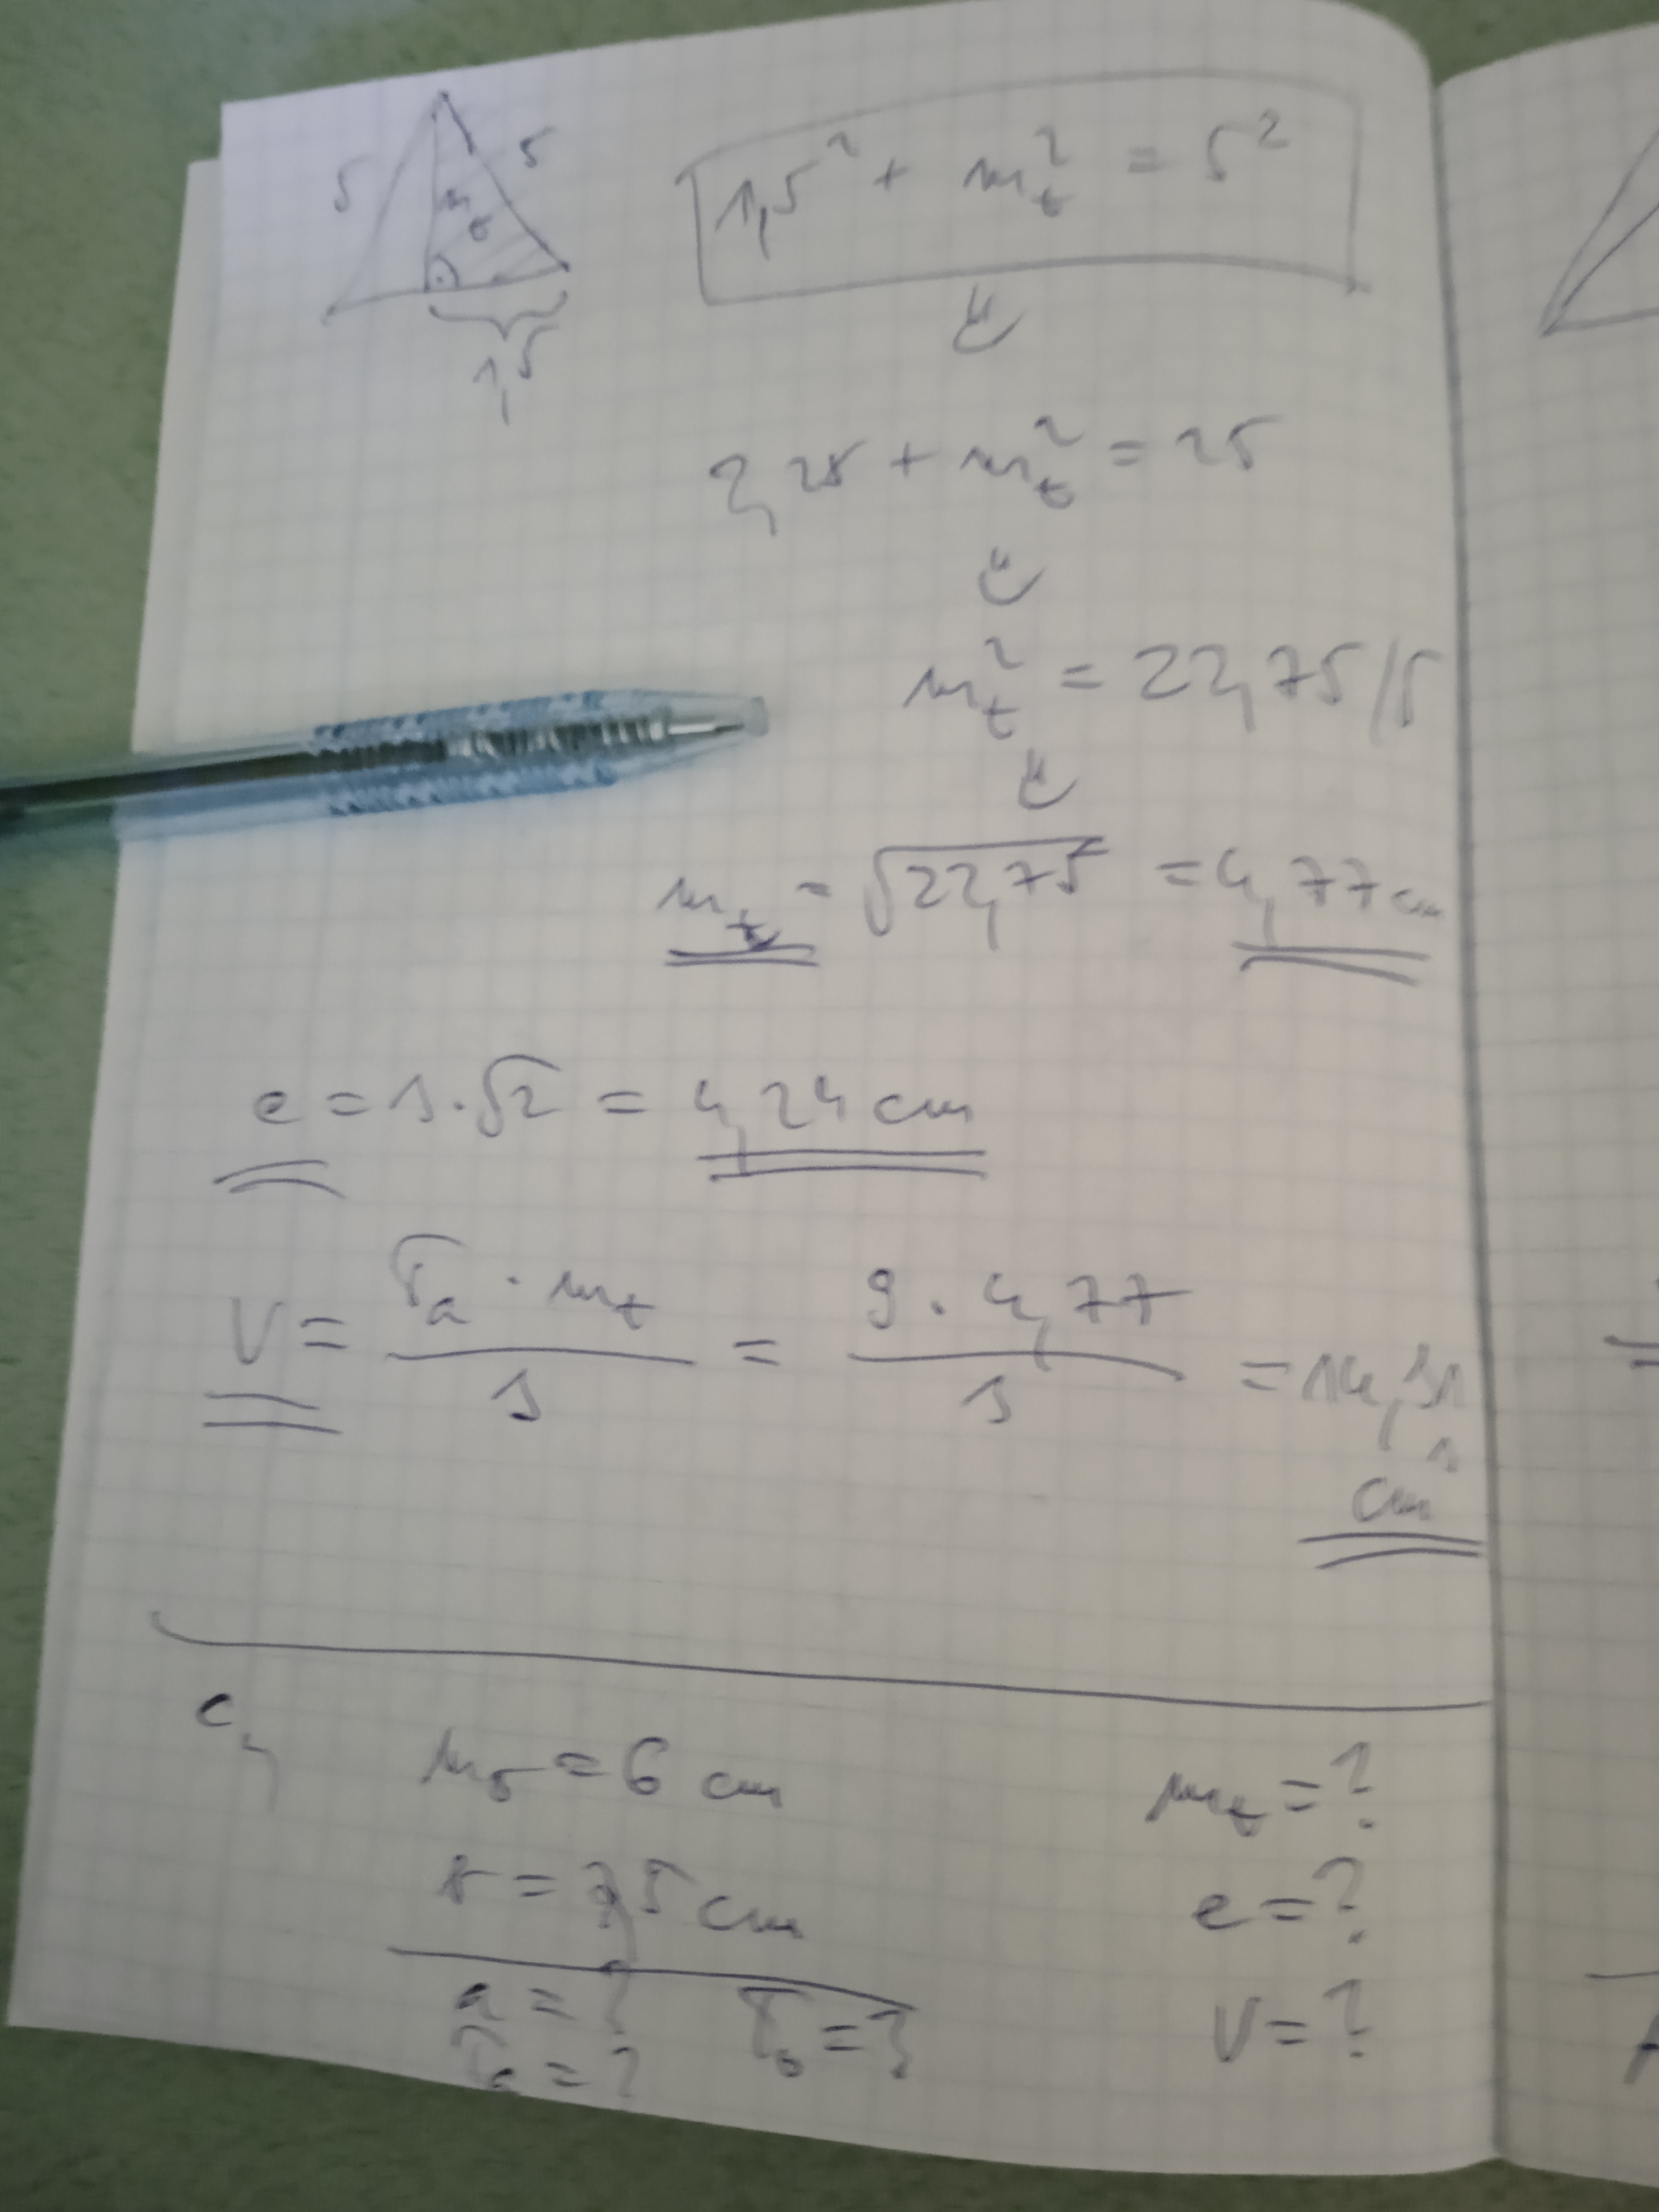 5 5
m_t
1,5
1,5² + m_t² = 5²
⇓
2,25 + m_t² = 25
⇓
m_t² = 22,75 /√
⇓
m_t = √22,75 = 4,77 cm
e = 3·√2 = 4,24 cm
V = T_a · m_t / 3 = 9 · 4,77 / 3 = 14,31
cm³
c,
m_o = 6 cm m_t = ?
b = 7,5 cm e = ?
a = ? T_o = ? V = ?
T_a = ?